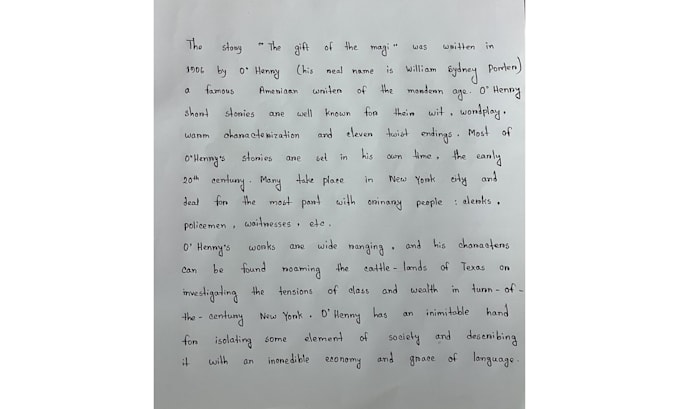 The story "The gift of the magi" was written in
1906 by O' Henry (his real name is William Sydney Porter)
a famous American writer of the mordern age. O' Henry
short stories are well known for their wit, wordplay,
warm characterization and clever twist endings. Most of
O'Henry's stories are set in his own time, the early
20th century. Many take place in New York city and
deal for the most part with orninary people : clerks,
policemen, waitresses, etc.
O' Henry's works are wide ranging, and his characters
can be found roaming the cattle-lands of Texas or
investigating the tensions of class and wealth in turn-of-
the-century New York. O' Henry has an inimitable hand
for isolating some element of society and describing
it with an incredible economy and grace of language.